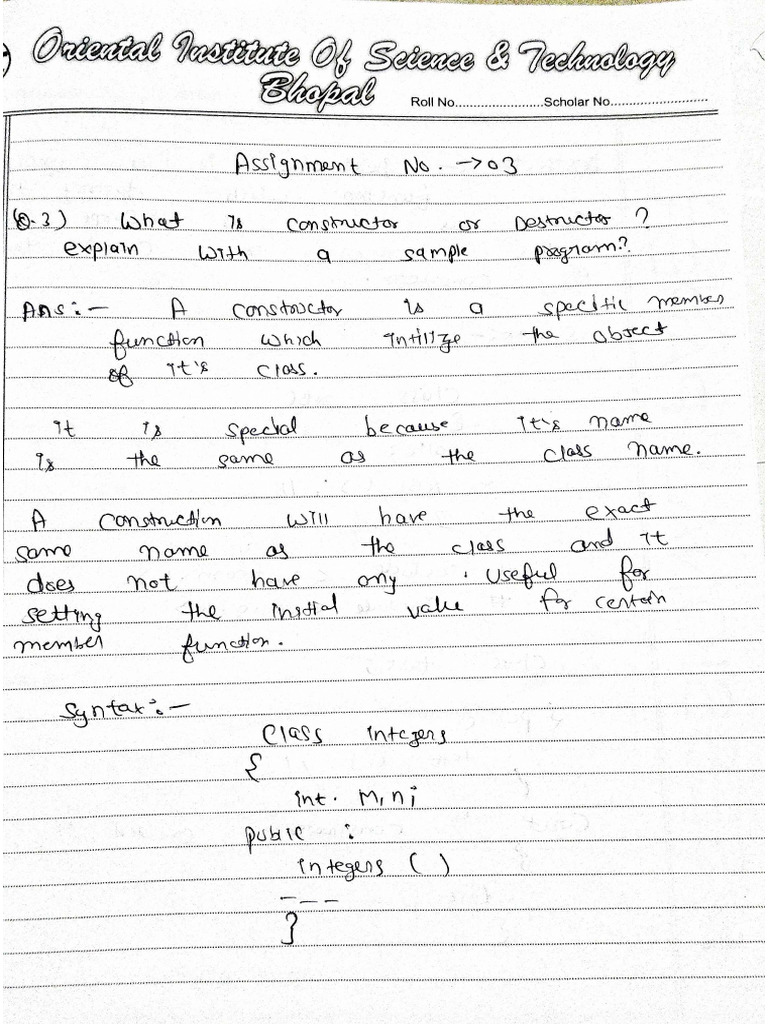 Oriental Institute Of Science & Technology
Bhopal
Roll No..........................Scholar No...........................
Assignment No. → 03
Q.3) What is constructor or Destructor?
explain with a sample program?.
Ans:- A constructor is a specific member
function which intilize the object
of it's class.
it is special because it's name
is the same as the class name.
A construction will have the exact
same name as the class and it
does not have any . useful for
setting the initial value for certain
member function.
Syntax:-
Class integers
{
int. m,n;
pubic :
integers ( )
- - -
}